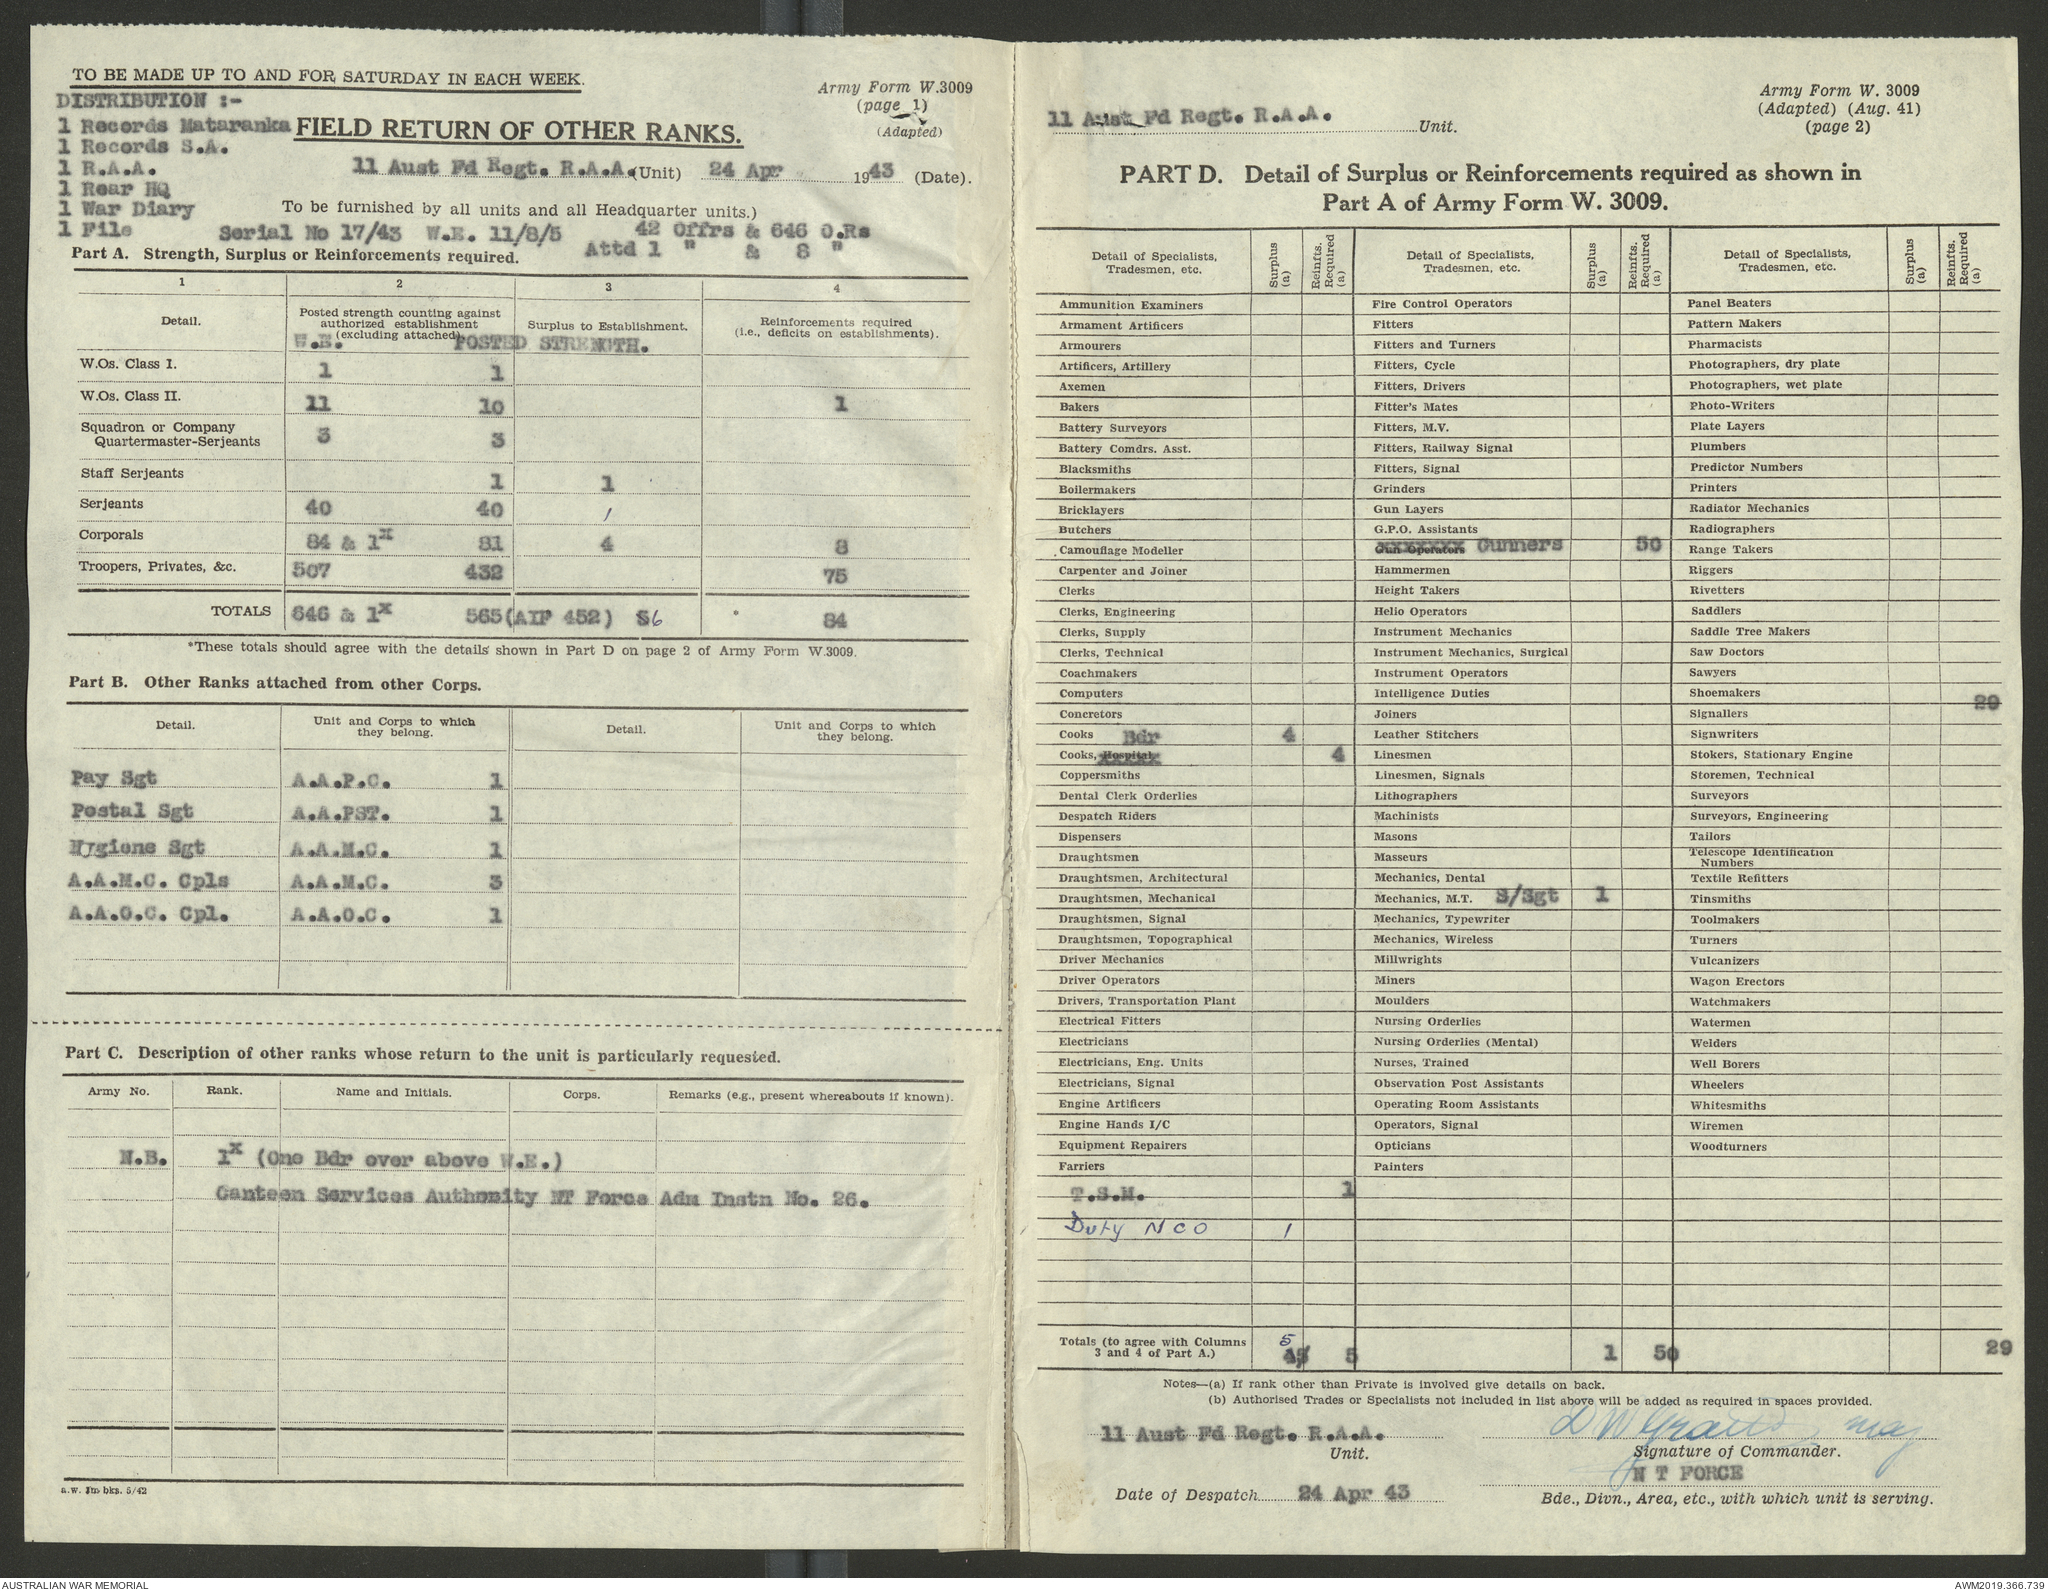 TO BE MADE UP TO AND FOR SATURDAY IN EACH WEEK.
Army Form W.3009
(page 1)
(Adapted)
DISTRIBUTION :-
1 Records Mataranka
1 Records S.A.
1 R.A.A.
1 Rear HQ
1 War Diary
1 File
FIELD RETURN OF OTHER RANKS.
11 Aust Fd Regt. R.A.A. (Unit) 24 Apr 1943 (Date).
To be furnished by all units and all Headquarter units.)
Serial No 17/43 W.E. 11/8/5 42 Offrs & 646 O.Rs
Attd 1 " & 8 "
Part A. Strength, Surplus or Reinforcements required.
1 2 3 4
Detail. Posted strength counting against authorized establishment (excluding attached) Surplus to Establishment. Reinforcements required (i.e., deficits on establishments).
W.E. POSTED STRENGTH.
W.Os. Class I. 1 1
W.Os. Class II. 11 10 1
Squadron or Company Quartermaster-Serjeants 3 3
Staff Serjeants 1 1
Serjeants 40 40 1
Corporals 84 & 1x 81 4 8
Troopers, Privates, &c. 507 432 75
TOTALS 646 & 1x 565 (AIF 452) 6 * 84
*These totals should agree with the details shown in Part D on page 2 of Army Form W.3009.
Part B. Other Ranks attached from other Corps.
Detail. Unit and Corps to which they belong. Detail. Unit and Corps to which they belong.
Pay Sgt A.A.P.C. 1
Postal Sgt A.A.PST. 1
Hygiene Sgt A.A.M.C. 1
A.A.M.C. Cpls A.A.M.C. 3
A.A.O.C. Cpl. A.A.O.C. 1
Part C. Description of other ranks whose return to the unit is particularly requested.
Army No. Rank. Name and Initials. Corps. Remarks (e.g., present whereabouts if known).
N.B. 1x (One Bdr over above W.E.)
Canteen Services Authority NT Force Adm Instn No. 26.
a.w. 1m bks. 5/42
Army Form W. 3009
(Adapted) (Aug. 41)
(page 2)
11 Aust Fd Regt. R.A.A. Unit.
PART D. Detail of Surplus or Reinforcements required as shown in
Part A of Army Form W. 3009.
Detail of Specialists, Tradesmen, etc. Surplus (a) Reinfts. Required (a)
Ammunition Examiners
Armament Artificers
Armourers
Artificers, Artillery
Axemen
Bakers
Battery Surveyors
Battery Comdrs. Asst.
Blacksmiths
Boilermakers
Bricklayers
Butchers
Camouflage Modeller
Carpenter and Joiner
Clerks
Clerks, Engineering
Clerks, Supply
Clerks, Technical
Coachmakers
Computers
Concretors
Cooks Bdr 4
Cooks, Hospital 4
Coppersmiths
Dental Clerk Orderlies
Despatch Riders
Dispensers
Draughtsmen
Draughtsmen, Architectural
Draughtsmen, Mechanical
Draughtsmen, Signal
Draughtsmen, Topographical
Driver Mechanics
Driver Operators
Drivers, Transportation Plant
Electrical Fitters
Electricians
Electricians, Eng. Units
Electricians, Signal
Engine Artificers
Engine Hands I/C
Equipment Repairers
Farriers
T.S.M. 1
Duty NCO 1
Detail of Specialists, Tradesmen, etc. Surplus (a) Reinfts. Required (a)
Fire Control Operators
Fitters
Fitters and Turners
Fitters, Cycle
Fitters, Drivers
Fitter's Mates
Fitters, M.V.
Fitters, Railway Signal
Fitters, Signal
Grinders
Gun Layers
G.P.O. Assistants
Gun Operators Gunners 50
Hammermen
Height Takers
Helio Operators
Instrument Mechanics
Instrument Mechanics, Surgical
Instrument Operators
Intelligence Duties
Joiners
Leather Stitchers
Linesmen
Linesmen, Signals
Lithographers
Machinists
Masons
Masseurs
Mechanics, Dental
Mechanics, M.T. S/Sgt 1
Mechanics, Typewriter
Mechanics, Wireless
Millwrights
Miners
Moulders
Nursing Orderlies
Nursing Orderlies (Mental)
Nurses, Trained
Observation Post Assistants
Operating Room Assistants
Operators, Signal
Opticians
Painters
Detail of Specialists, Tradesmen, etc. Surplus (a) Reinfts. Required (a)
Panel Beaters
Pattern Makers
Pharmacists
Photographers, dry plate
Photographers, wet plate
Photo-Writers
Plate Layers
Plumbers
Predictor Numbers
Printers
Radiator Mechanics
Radiographers
Range Takers
Riggers
Rivetters
Saddlers
Saddle Tree Makers
Saw Doctors
Sawyers
Shoemakers
Signallers 29
Signwriters
Stokers, Stationary Engine
Storemen, Technical
Surveyors
Surveyors, Engineering
Tailors
Telescope Identification Numbers
Textile Refitters
Tinsmiths
Toolmakers
Turners
Vulcanizers
Wagon Erectors
Watchmakers
Watermen
Welders
Well Borers
Wheelers
Whitesmiths
Wiremen
Woodturners
Totals (to agree with Columns 3 and 4 of Part A.) 5 5 1 50 29
Notes—(a) If rank other than Private is involved give details on back.
(b) Authorised Trades or Specialists not included in list above will be added as required in spaces provided.
11 Aust Fd Regt. R.A.A.
Unit.
Maj
Signature of Commander.
N T FORCE
Date of Despatch 24 Apr 43
Bde., Divn., Area, etc., with which unit is serving.
AUSTRALIAN WAR MEMORIAL
AWM2019.366.739